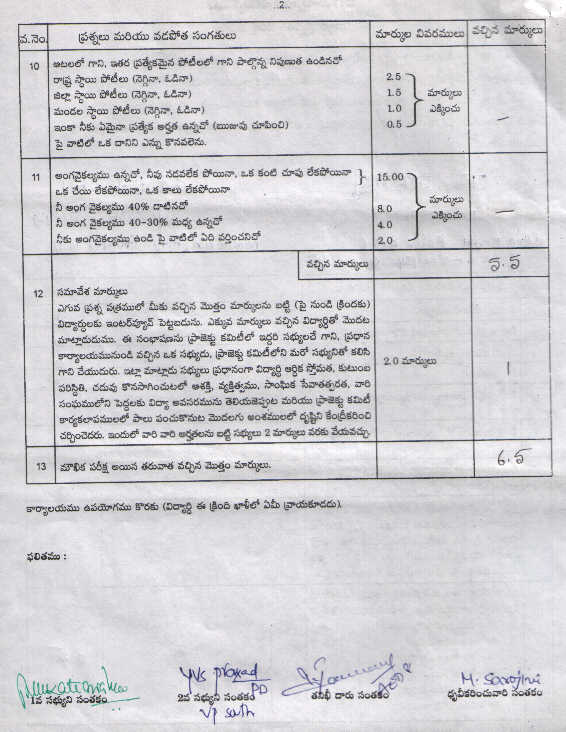 ..2..
వ.నెం. ప్రశ్నలు మరియు వడపోత సంగతులు మార్కుల వివరములు వచ్చిన మార్కులు
10 ఆటలలో గాని, ఇతర ప్రత్యేకమైన పోటీలలో గాని పాల్గొన్న నిపుణత ఉండినచో
రాష్ట్ర స్థాయి పోటీలు (నెగ్గినా, ఓడినా) 2.5
జిల్లా స్థాయి పోటీలు (నెగ్గినా, ఓడినా) 1.5 మార్కులు
మండల స్థాయి పోటీలు (నెగ్గినా, ఓడినా) 1.0 ఎక్కించు
ఇంకా నీకు ఏమైనా ప్రత్యేక అర్హత ఉన్నచో (ఋజువు చూపించి) 0.5 —
పై వాటిలో ఒక దానిని ఎన్ను కొనవలెను.
11 అంగవైకల్యము ఉన్నచో, నీవు నడవలేక పోయినా, ఒక కంటి చూపు లేకపోయినా 15.00
ఒక చేయి లేకపోయినా, ఒక కాలు లేకపోయినా
నీ అంగ వైకల్యము 40% దాటినచో 8.0 మార్కులు
నీ అంగ వైకల్యము 40-30% మధ్య ఉన్నచో 4.0 ఎక్కించు —
నీకు అంగవైకల్యము ఉండి పై వాటిలో ఏది వర్తించనిచో 2.0
వచ్చిన మార్కులు 5.5
12 సమావేశ మార్కులు
ఎగువ ప్రశ్న పత్రములో మీకు వచ్చిన మొత్తం మార్కులను బట్టి (పై నుండి క్రిందకు)
విద్యార్థులకు ఇంటర్‌వ్యూన్ పెట్టబడును. ఎక్కువ మార్కులు వచ్చిన విద్యార్థితో మొదట
మాట్లాడుదుము. ఈ సంభాషణను ప్రాజెక్టు కమిటీలో ఇద్దరి సభ్యులచే గాని, ప్రధాన
కార్యాలయమునుండి వచ్చిన ఒక సభ్యుడు, ప్రాజెక్టు కమిటీలోని మరో సభ్యునితో కలిసి
గాని చేయుదురు. ఇట్లా మాట్లాడు సభ్యులు ప్రధానంగా విద్యార్థి ఆర్థిక స్తోమత, కుటుంబ 2.0 మార్కులు 1
పరిస్థితి, చదువు కొనసాగించుటలో ఆశక్తి, వ్యక్తిత్వము, సాంఘిక సేవాతత్పరత, వారి
సంఘములోని పెద్దలకు విద్యా అవసరమును తెలియజెప్పుట మరియు ప్రాజెక్టు కమిటీ
కార్యకలాపములలో పాలు పంచుకొనుట మొదలగు అంశములలో దృష్టిని కేంద్రీకరించి
చర్చించెదరు. ఇందులో వారి వారి అర్హతలను బట్టి సభ్యులు 2 మార్కులు వరకు వేయవచ్చు.
13 మౌఖిక పరీక్ష అయిన తరువాత వచ్చిన మొత్తం మార్కులు. 6.5
కార్యాలయము ఉపయోగము కొరకు (విద్యార్థి ఈ క్రింది ఖాళీలో ఏమీ వ్రాయకూడదు).
ఫలితము :
YVS Prasad M. Sarojini
PD
1వ సభ్యుని సంతకం 2వ సభ్యుని సంతకం తనిఖీ దారు సంతకం ధృవీకరించువారి సంతకం